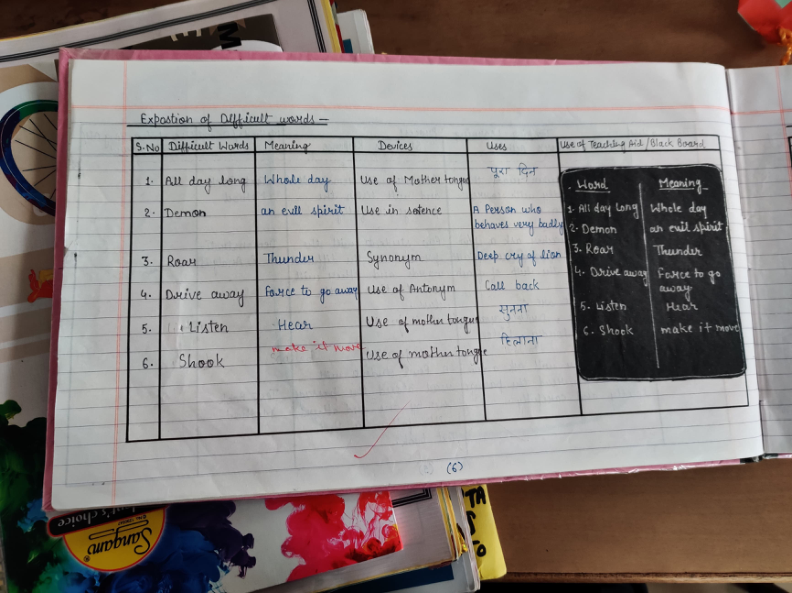 Expostion of Difficult words -
S.No Difficult Words Meaning Devices Uses Use of Teaching Aid / Black Board
1. All day long Whole day Use of Mother tongue पूरा दिन
2. Demon an evil spirit Use in science A Person who
behaves very badly
3. Roar Thunder Synonym Deep cry of lion
4. Drive away Force to go away Use of Antonym Call back
5. Listen Hear Use of mother tongue सुनना
6. Shook make it move Use of mother tongue हिलाना
Word Meaning
1. All day Long Whole day
2. Demon an evil spirit
3. Roar Thunder
4. Drive away Force to go
away
5. Listen Hear
6. Shook make it move
(6)
Sangam